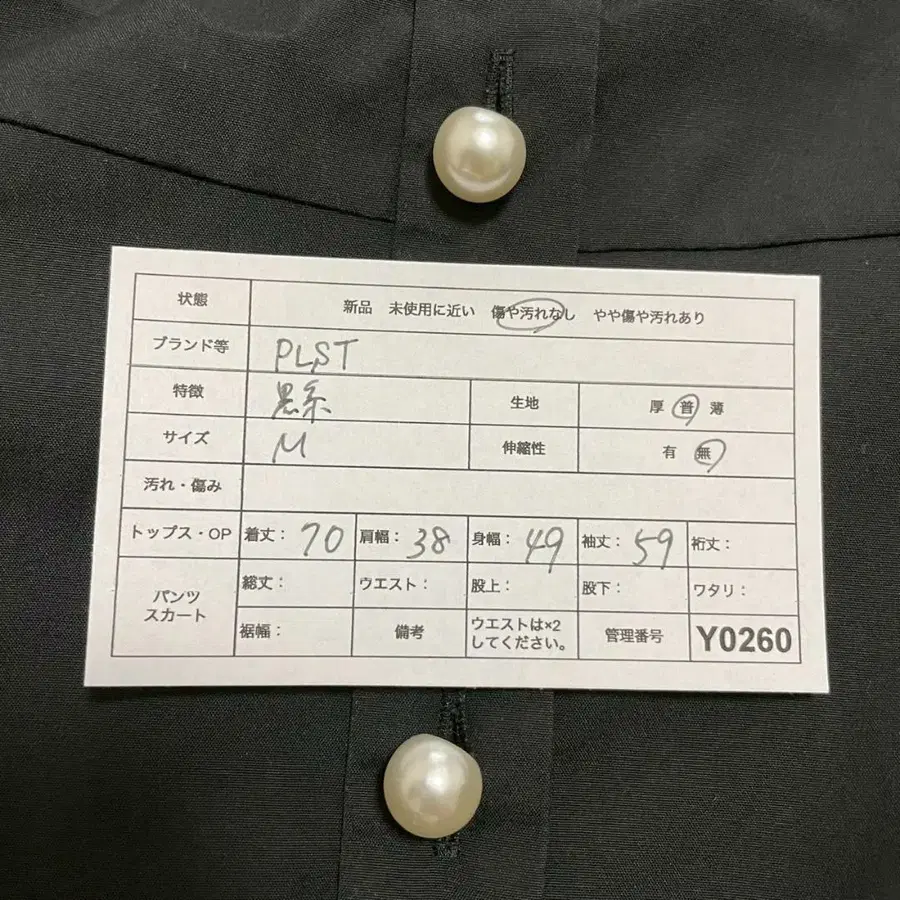 状態 新品 未使用に近い 傷や汚れなし やや傷や汚れあり
ブランド等 PLST
特徴 黒系 生地 厚 普 薄
サイズ M 伸縮性 有 無
汚れ・傷み
トップス・OP 着丈： 70 肩幅： 38 身幅： 49 袖丈： 59 裄丈：
パンツ スカート 総丈： ウエスト： 股上： 股下： ワタリ：
裾幅： 備考 ウエストは×2 してください。 管理番号 Y0260